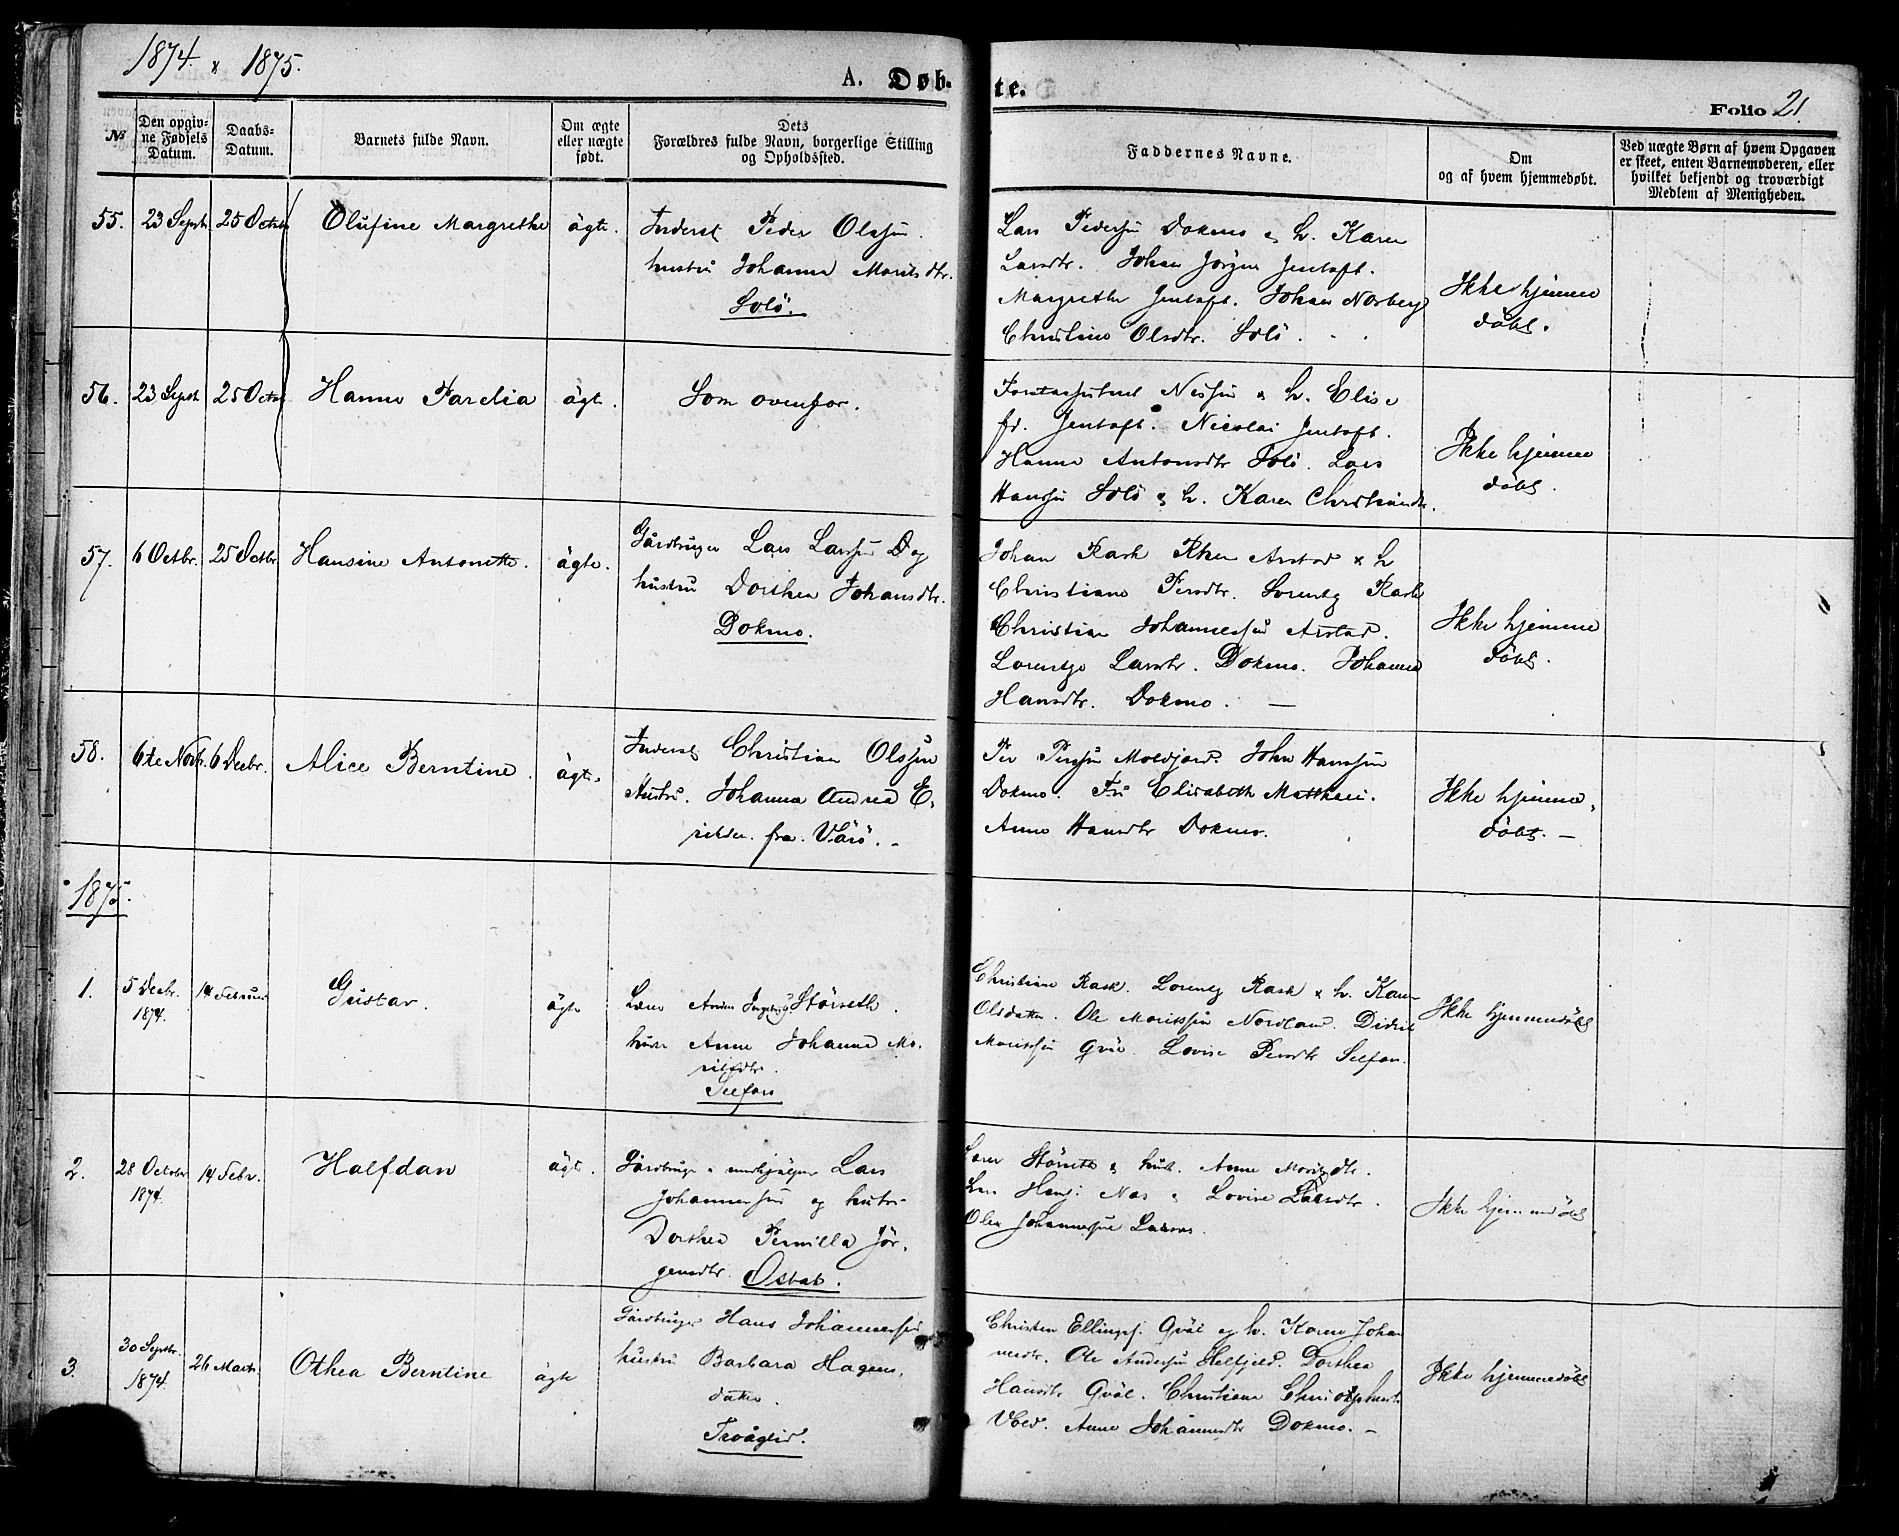 1874. & 1875.
A. Døbte.
Folio 21.
No
Den opgivne Fødsels Datum.
Daabs-Datum.
Barnets fulde Navn.
Om ægte eller uægte født.
Dets Forældres fulde Navn, borgerlige Stilling og Opholdssted.
Faddernes Navne.
Om og af hvem hjemmedøbt.
Ved uægte Børn af hvem Opgaven er skeet, enten Barnemoderen, eller hvilket bekjendt og troværdigt Medlem af Menigheden.
55. 23 Septr 25 Octbr Olufine Margrethe ägte.
Inderst Peder Olssen.
hustru Johanna Moritsdtr.
Solö.
Lars Pedersen Dokmo & h. Karen
Larsdtr. Johan Jörgen Jentoft.
Margrethe Jentoft. Johan Norberg
Christine Olsdtr. Solö.
Ikke hjemme
döbt.
56. 23 Septr 25 Octbr Hanna Parelia ägte.
Som ovenfor.
& h. Elise
fd. Jentoft. Nicolai Jentoft.
Hanna Antonsdtr Solö. Lars
Hanssen Solö & h. Karen
Ikke hjemme
döbt.
57. 6 Octbr. 25 Octbr Hansine Antonette. ägte.
Gårdbruger Lars Larssen og
hustru Dorthea Johansdtr.
Dokmo.
Johan Rask Arstad & h
Christiane Persdtr. Lorentz Rask
Christian Johannessen Arstad.
Lorentze Larsdtr. Dokmo. Johanna
Hansdtr. Dokmo. —
Ikke hjemme
döbt.
58. 6te Novbr. 6 Decbr. Alice Berntine. ägte.
Inderst Christian Olssen
Hustru. Johanna Andrea E-
fra Värö. -
Per Persen Moldjord. John Hanssen
Dokmo. Fru Elisabeth Matthæi.
Anne Hansdtr Dokmo.
Ikke hjemme-
döbt. —
1875.
1. 5 Decbr. 1874. 14 Februar Gustav. ägte
Lærer Störseth.
hustr Anne Johanna Mo-
ritsdtr.
Selfors
Christiane Rask. Lorentz Rask & h. Karen
Olsdatter. Ole Moritssen Nordland. Didrik
Moritssen Qväl. Lovise Persdtr Selfors.
Ikke hjemmedöbt
2. 28 October 1874. 14 Febr. Halfdan ägte.
Gårdbruger & Lars
Johannessen og hustru
Dorthea Pernilla Jör-
gensdtr. Osbak.
Lærer Störseth & hust. Anne Moritsdtr.
Lars Hanss. Nas & Lovise Larsdtr.
Johannessen
Ikke hjemmedöbt
3. 30 Septbr. 1874. 26 Marts. Othea Berntine ägte
Gårdbruger Hans Johannessen
hustru Barbara Hagens-
datter.
Tvåglid.
Christen Ellingss. Qväl og h. Karen Johan
nesdtr. Ole Anderssen Selfjeld. Dorthea
Hansdtr Qväl. Christiane
Anne Johannesdtr Dokmo. —
Ikke hjemmedöbt